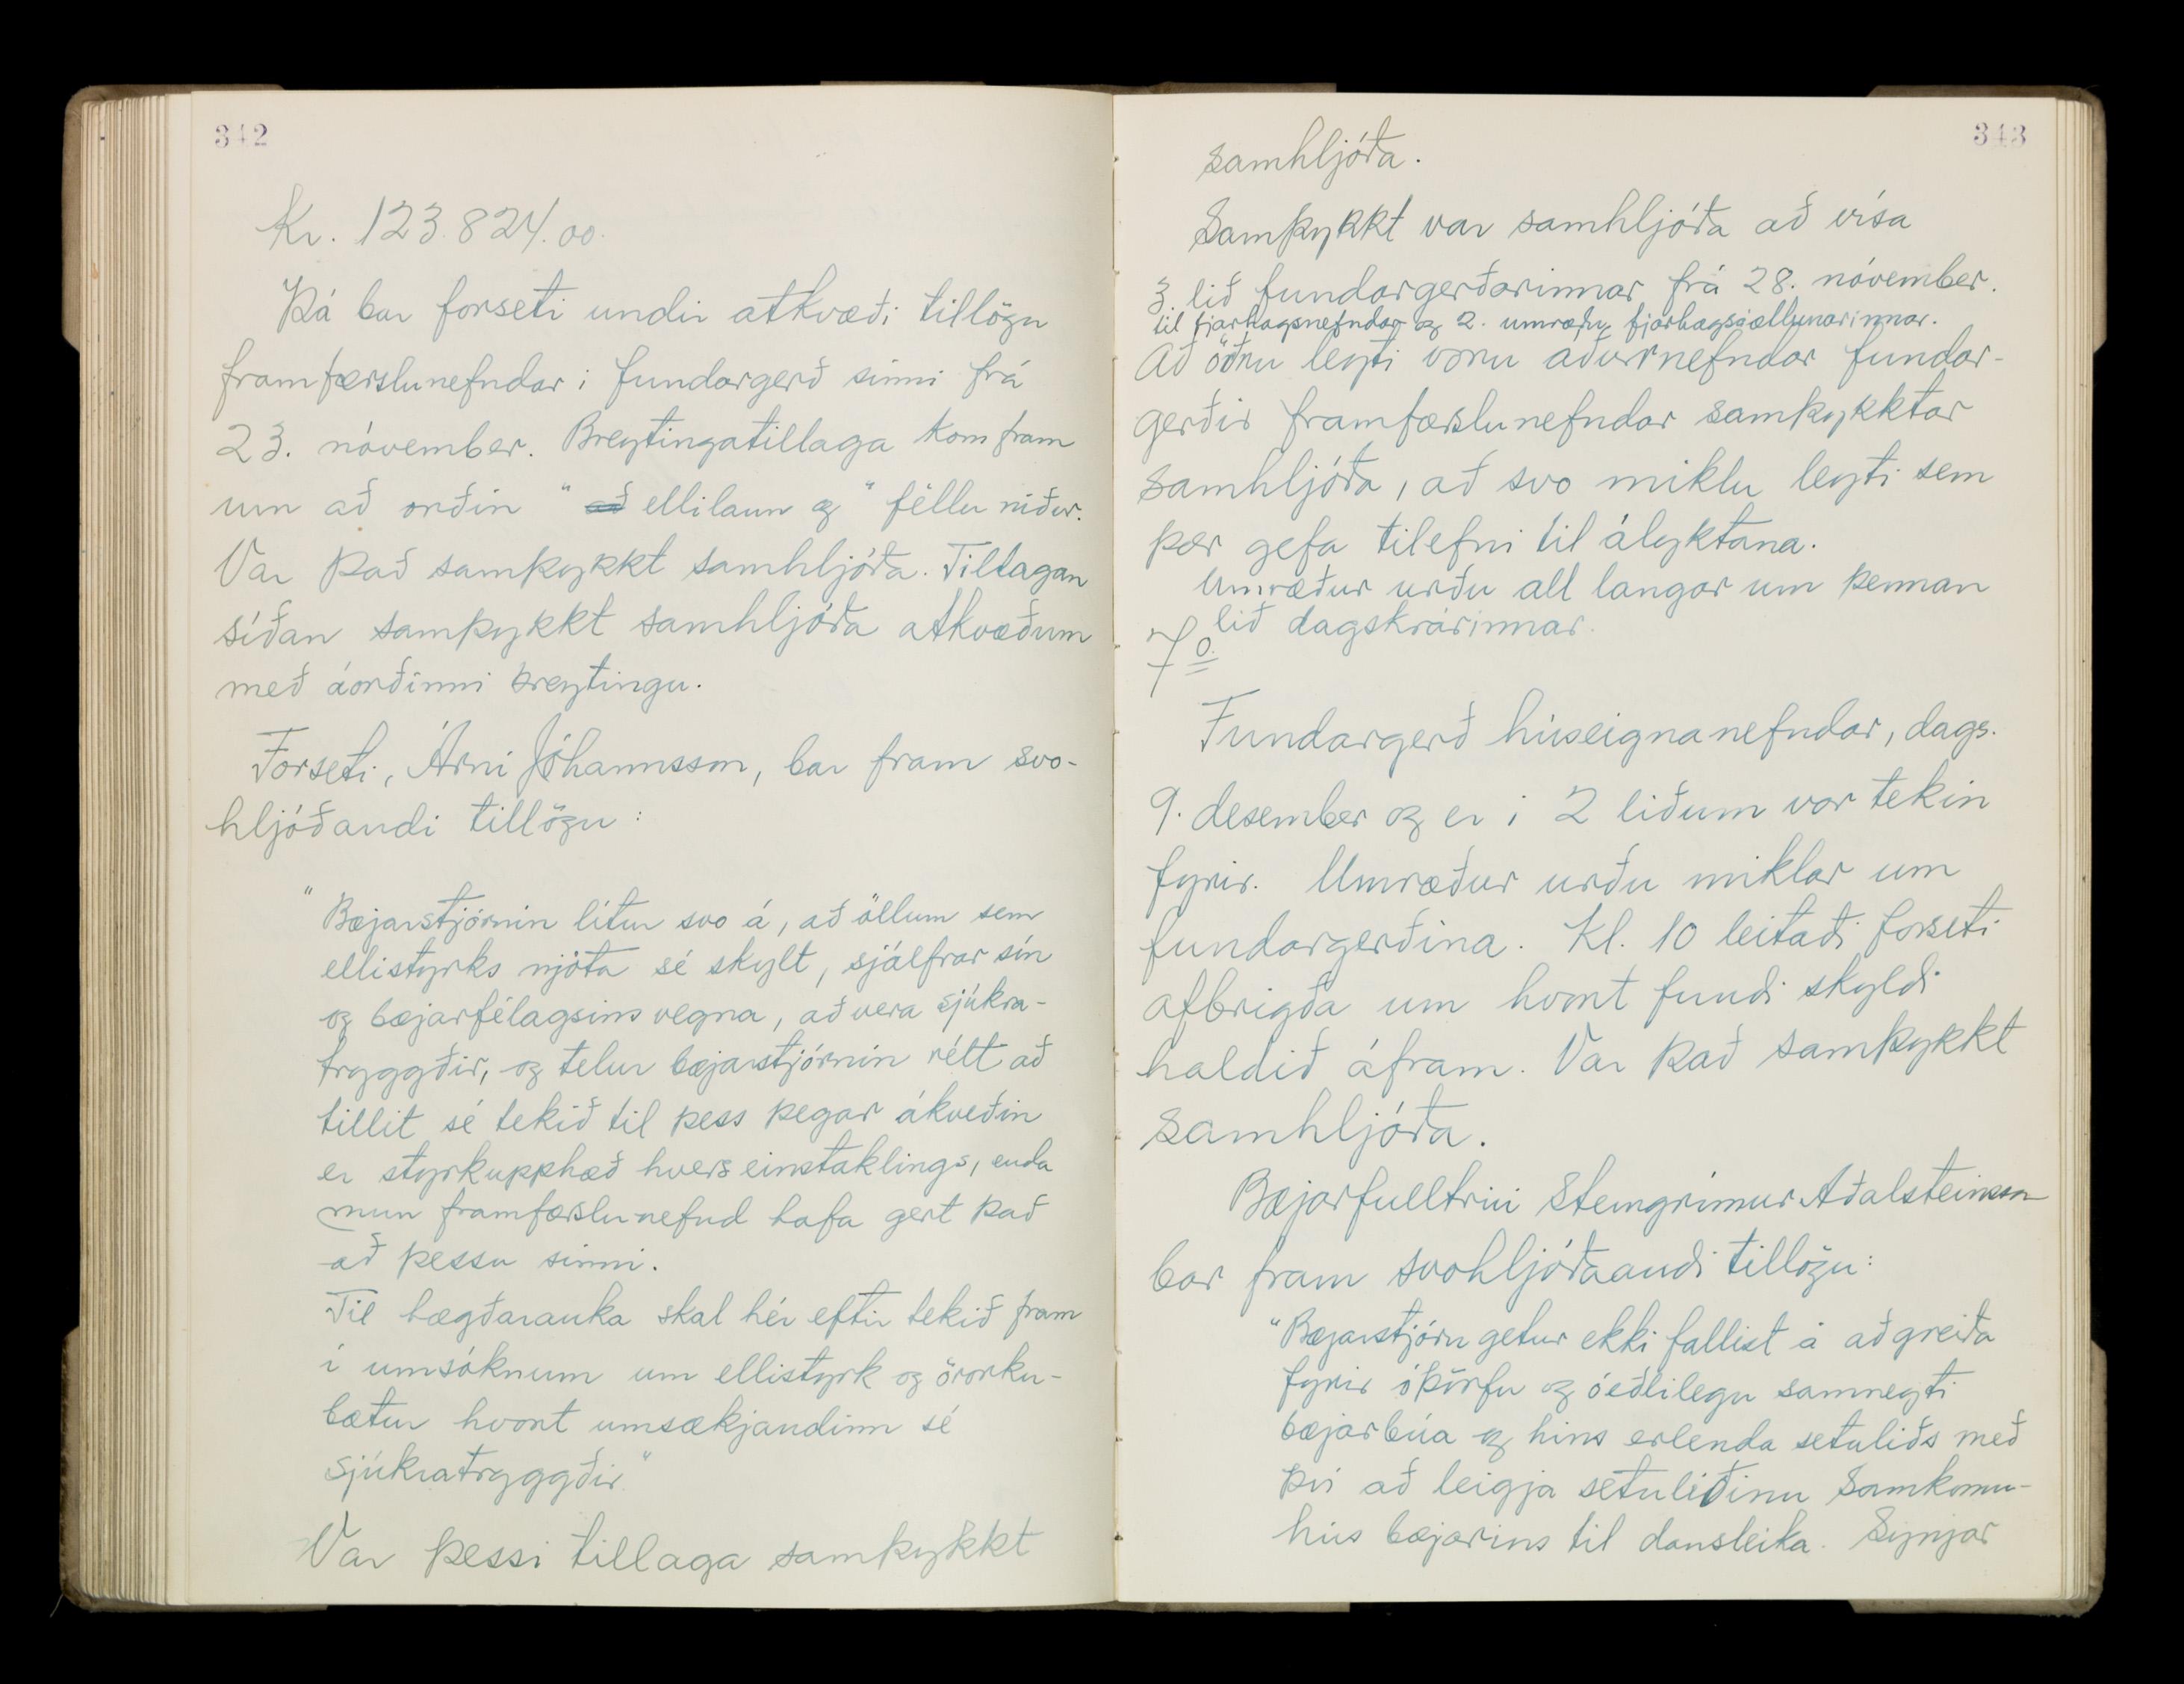 342
Kr. 123.824.00.
Þá bar forseti undir atkvæði tillögu
framfærslunefndar í fundargerð sinni frá
23. nóvember. Breytingatillaga kom fram
um að orðin " að ellilaun og " féllu niður.
Var það samþykkt samhljóða. Tillagan
síðan samþykkt samhljóða atkvæðum
með áorðinni breytingu.
Forseti, Árni Jóhannsson, bar fram svo-
hljóðandi tillögu :
" Bæjarstjórnin lítur svo á, að öllum sem
ellistyrks njóta sé skylt, sjálfrar sín
og bæjarfélagsins vegna, að vera sjúkra-
tryggðir, og telur bæjarstjórnin rétt að
tillit sé tekið til þess þegar ákveðin
er styrkupphæð hvers einstaklings, enda
mun framfærslunefnd hafa gert það
að þessu sinni.
Til hægðarauka skal hér eftir tekið fram
í umsóknum um ellistyrk og örorku-
bætur hvort umsækjandinn sé
sjúkratryggðir."
Var þessi tillaga samþykkt
343
samhljóða.
Samþykkt var samhljóða að vísa
3. lið fundargerðarinnar frá 28. nóvember.
til fjárhagsnefndar og 2. umræðu fjárhagsáætlunarinnar.
Að öðru leyti voru aðurnefndar fundar-
gerðir framfærslunefndar samþykktar
samhljóða, að svo miklu leyti sem
þær gefa tilefni til ályktana.
Umræður urðu all langar um þennan
lið dagskrárinnar.
7o.
Fundargerð húseignanefndar, dags.
9. desember og er í 2 liðum var tekin
fyrir. Umræður urðu miklar um
fundargerðina. Kl. 10 leitaði forseti
afbrigða um hvort fundi skyldi
haldið áfram. Var það samþykkt
samhljóða.
Bæjarfulltrúi Steingrímur Aðalsteinsson
bar fram svohljóðaandi tillögu:
"Bæjarstjórn getur ekki fallist á að greiða
fyrir óþörfu og óeðlilegu samneyti
bæjarbúa og hins erlenda setuliðs með
því að leigja setuliðinu Samkomu-
hús bæjarins til dansleika. Synjar